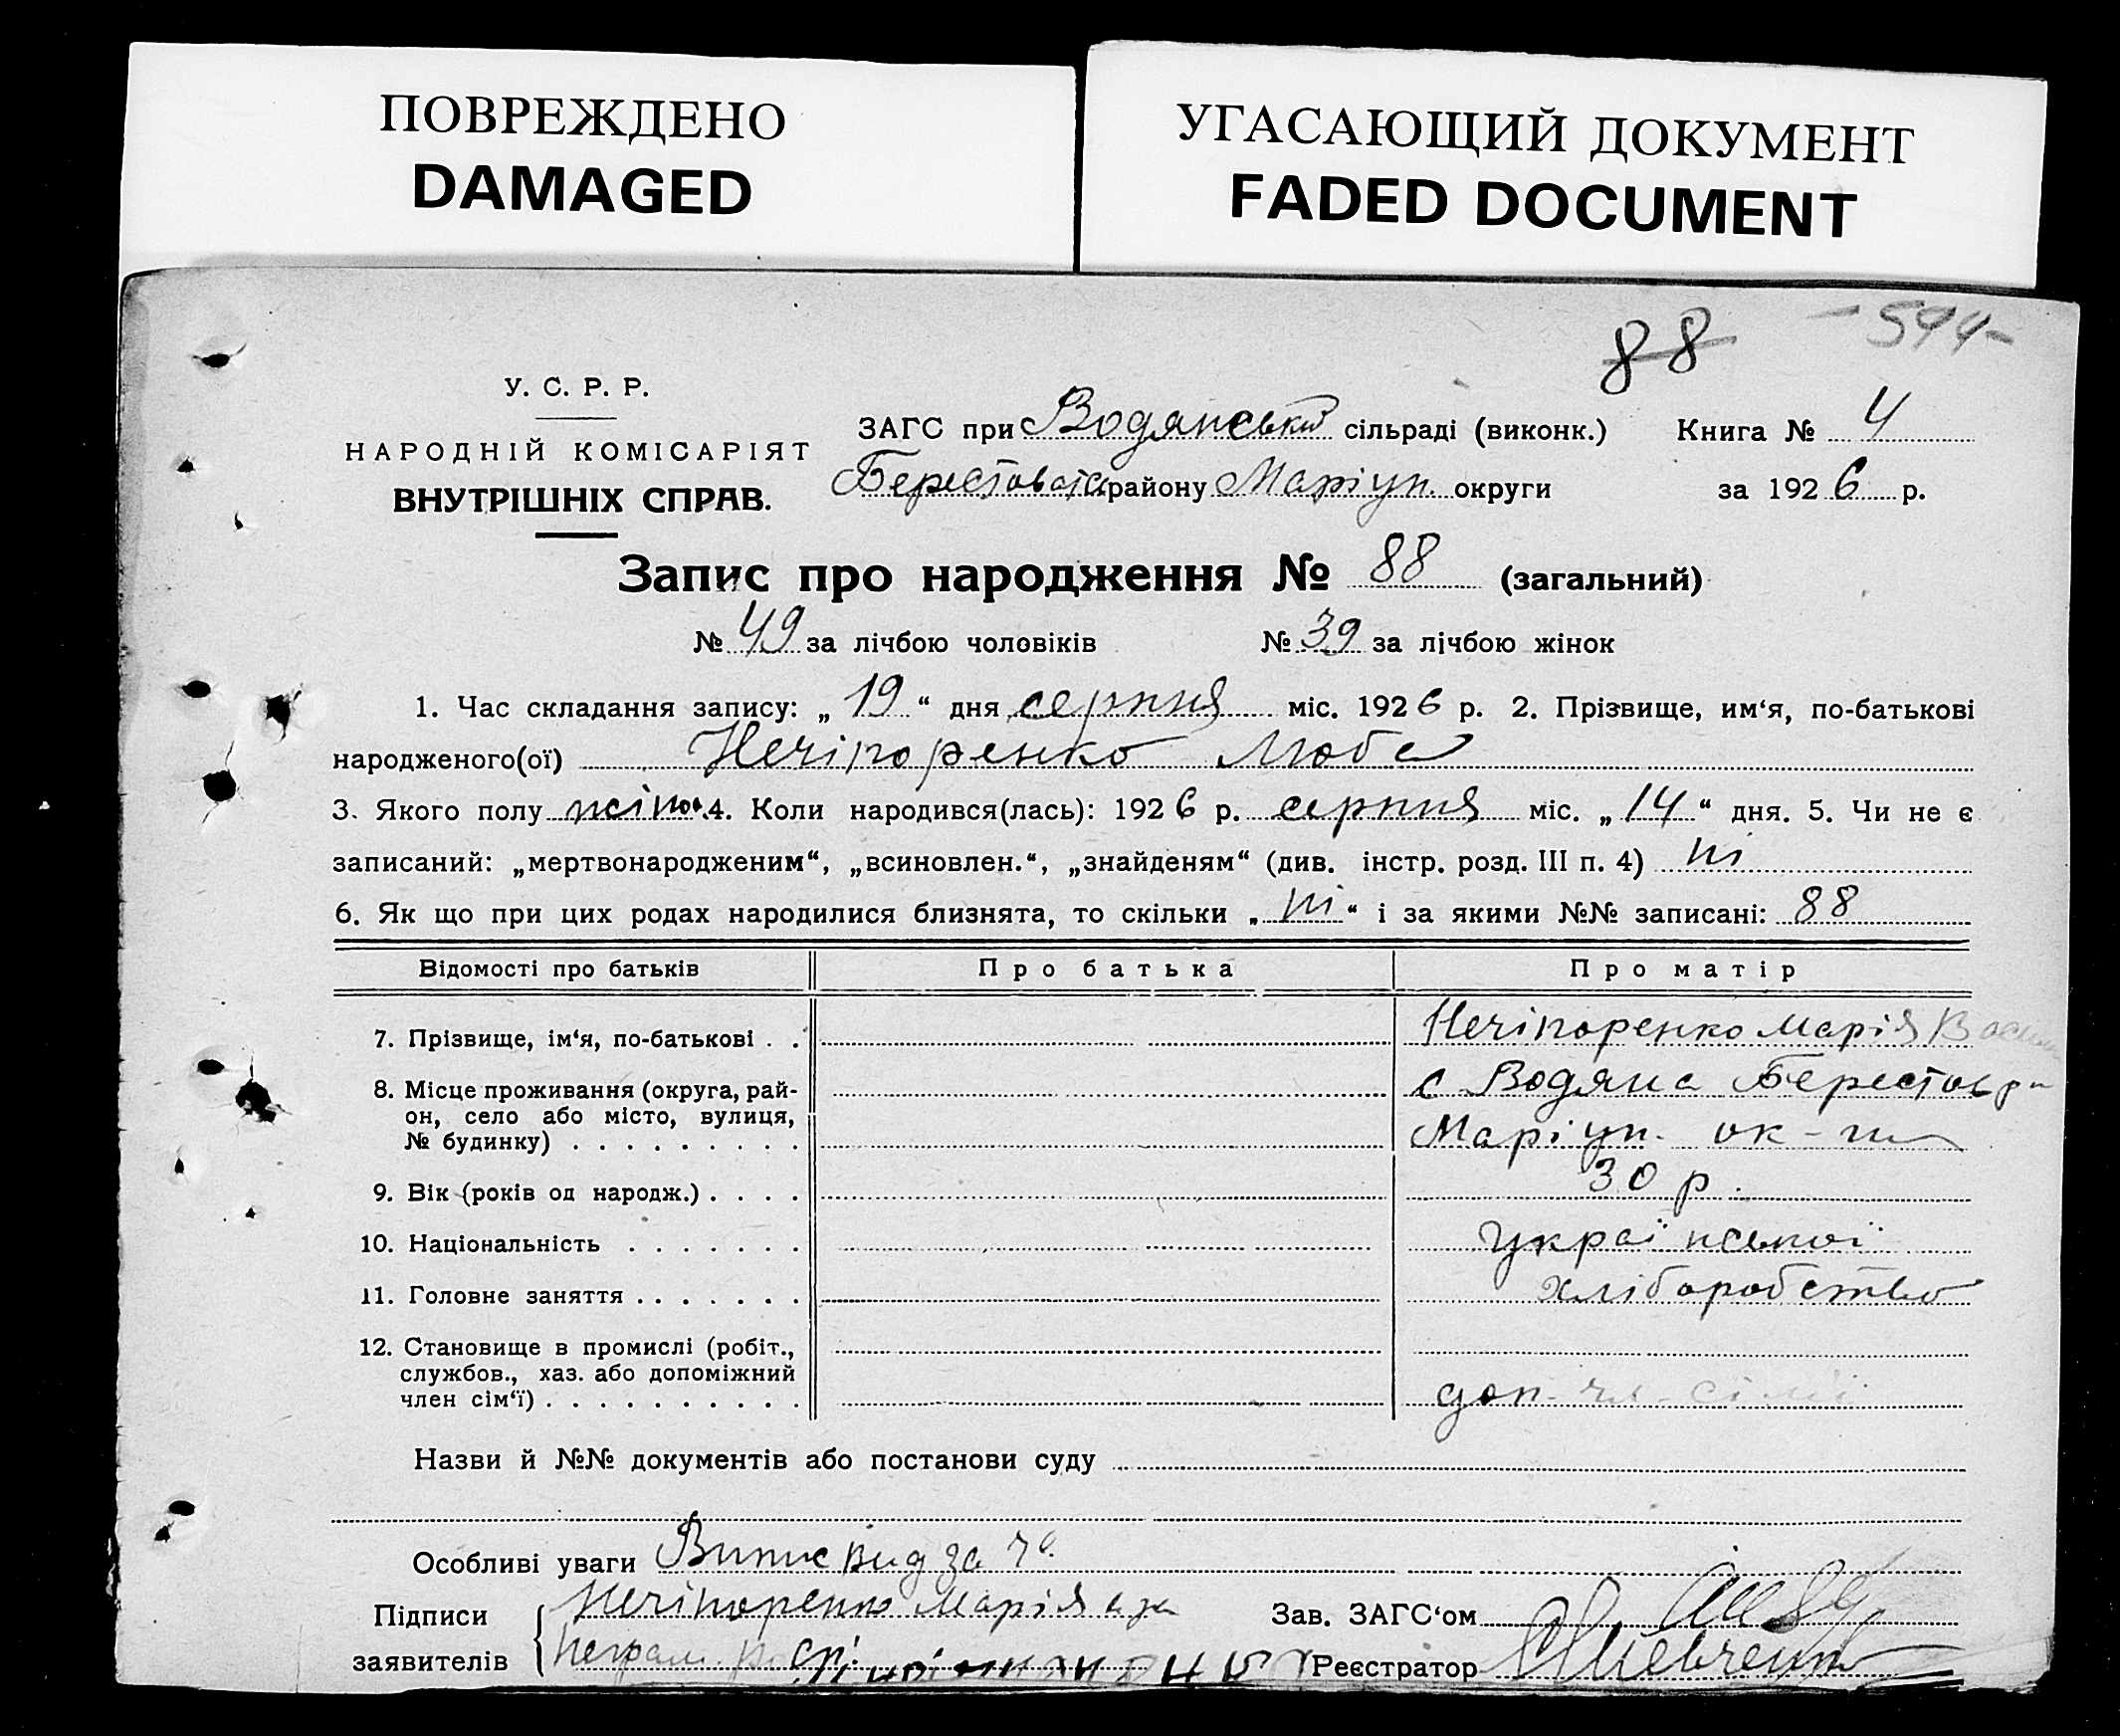 ПОВРЕЖДЕНО
DAMAGED
УГАСАЮЩИЙ ДОКУМЕНТ
FADED DOCUMENT
88 - 544 -
У. С. Р. Р.
НАРОДНІЙ КОМІСАРІЯТ
ВНУТРІШНІХ СПРАВ.
ЗАГС при Водянській сільраді (виконк.) Книга № 4
Берестоватс району Маріуп. округи за 1926 р.
Запис про народження № 88 (загальний)
№ 49 за лічбою чоловіків № 39 за лічбою жінок
1. Час складання запису: „ 19 “ дня серпня міс. 1926 р. 2. Прізвище, им‘я, по-батькові
народженого(ої) Нечіпоренко Люба
3. Якого полу жіноч. 4. Коли народився(лась): 1926 р. серпня міс. „ 14 “ дня. 5. Чи не є
записаний: „мертвонародженим“, „всиновлен.“, „знайденям“ (див. інстр. розд. III п. 4) ні
6. Як що при цих родах народилися близнята, то скільки „ ні “ і за якими №№ записані: 88
Відомості про батьків Про батька Про матір
7. Прізвище, ім‘я, по-батькові . . Нечіпоренко Марія Васил
8. Місце проживання (округа, рай-
он, село або місто, вулиця,
№ будинку) . . . . . . . . .
с Водяна Берестов рн
Маріуп. ок-ги
9. Вік (років од народж.) . . . . 30 р.
10. Національність . . . . . . . української
11. Головне заняття . . . . . . . хліборобство
12. Становище в промислі (робіт.,
службов., хаз. або допоміжний
член сім‘ї) . . . . . . . . . .
доп-чл-сім'ї
Назви й №№ документів або постанови суду
Особливі уваги Випис вид за
Підписи
заявителів
Нечіпоренко Марія а за
неграм.
Зав. ЗАГС‘ом
Реєстратор Шевченко